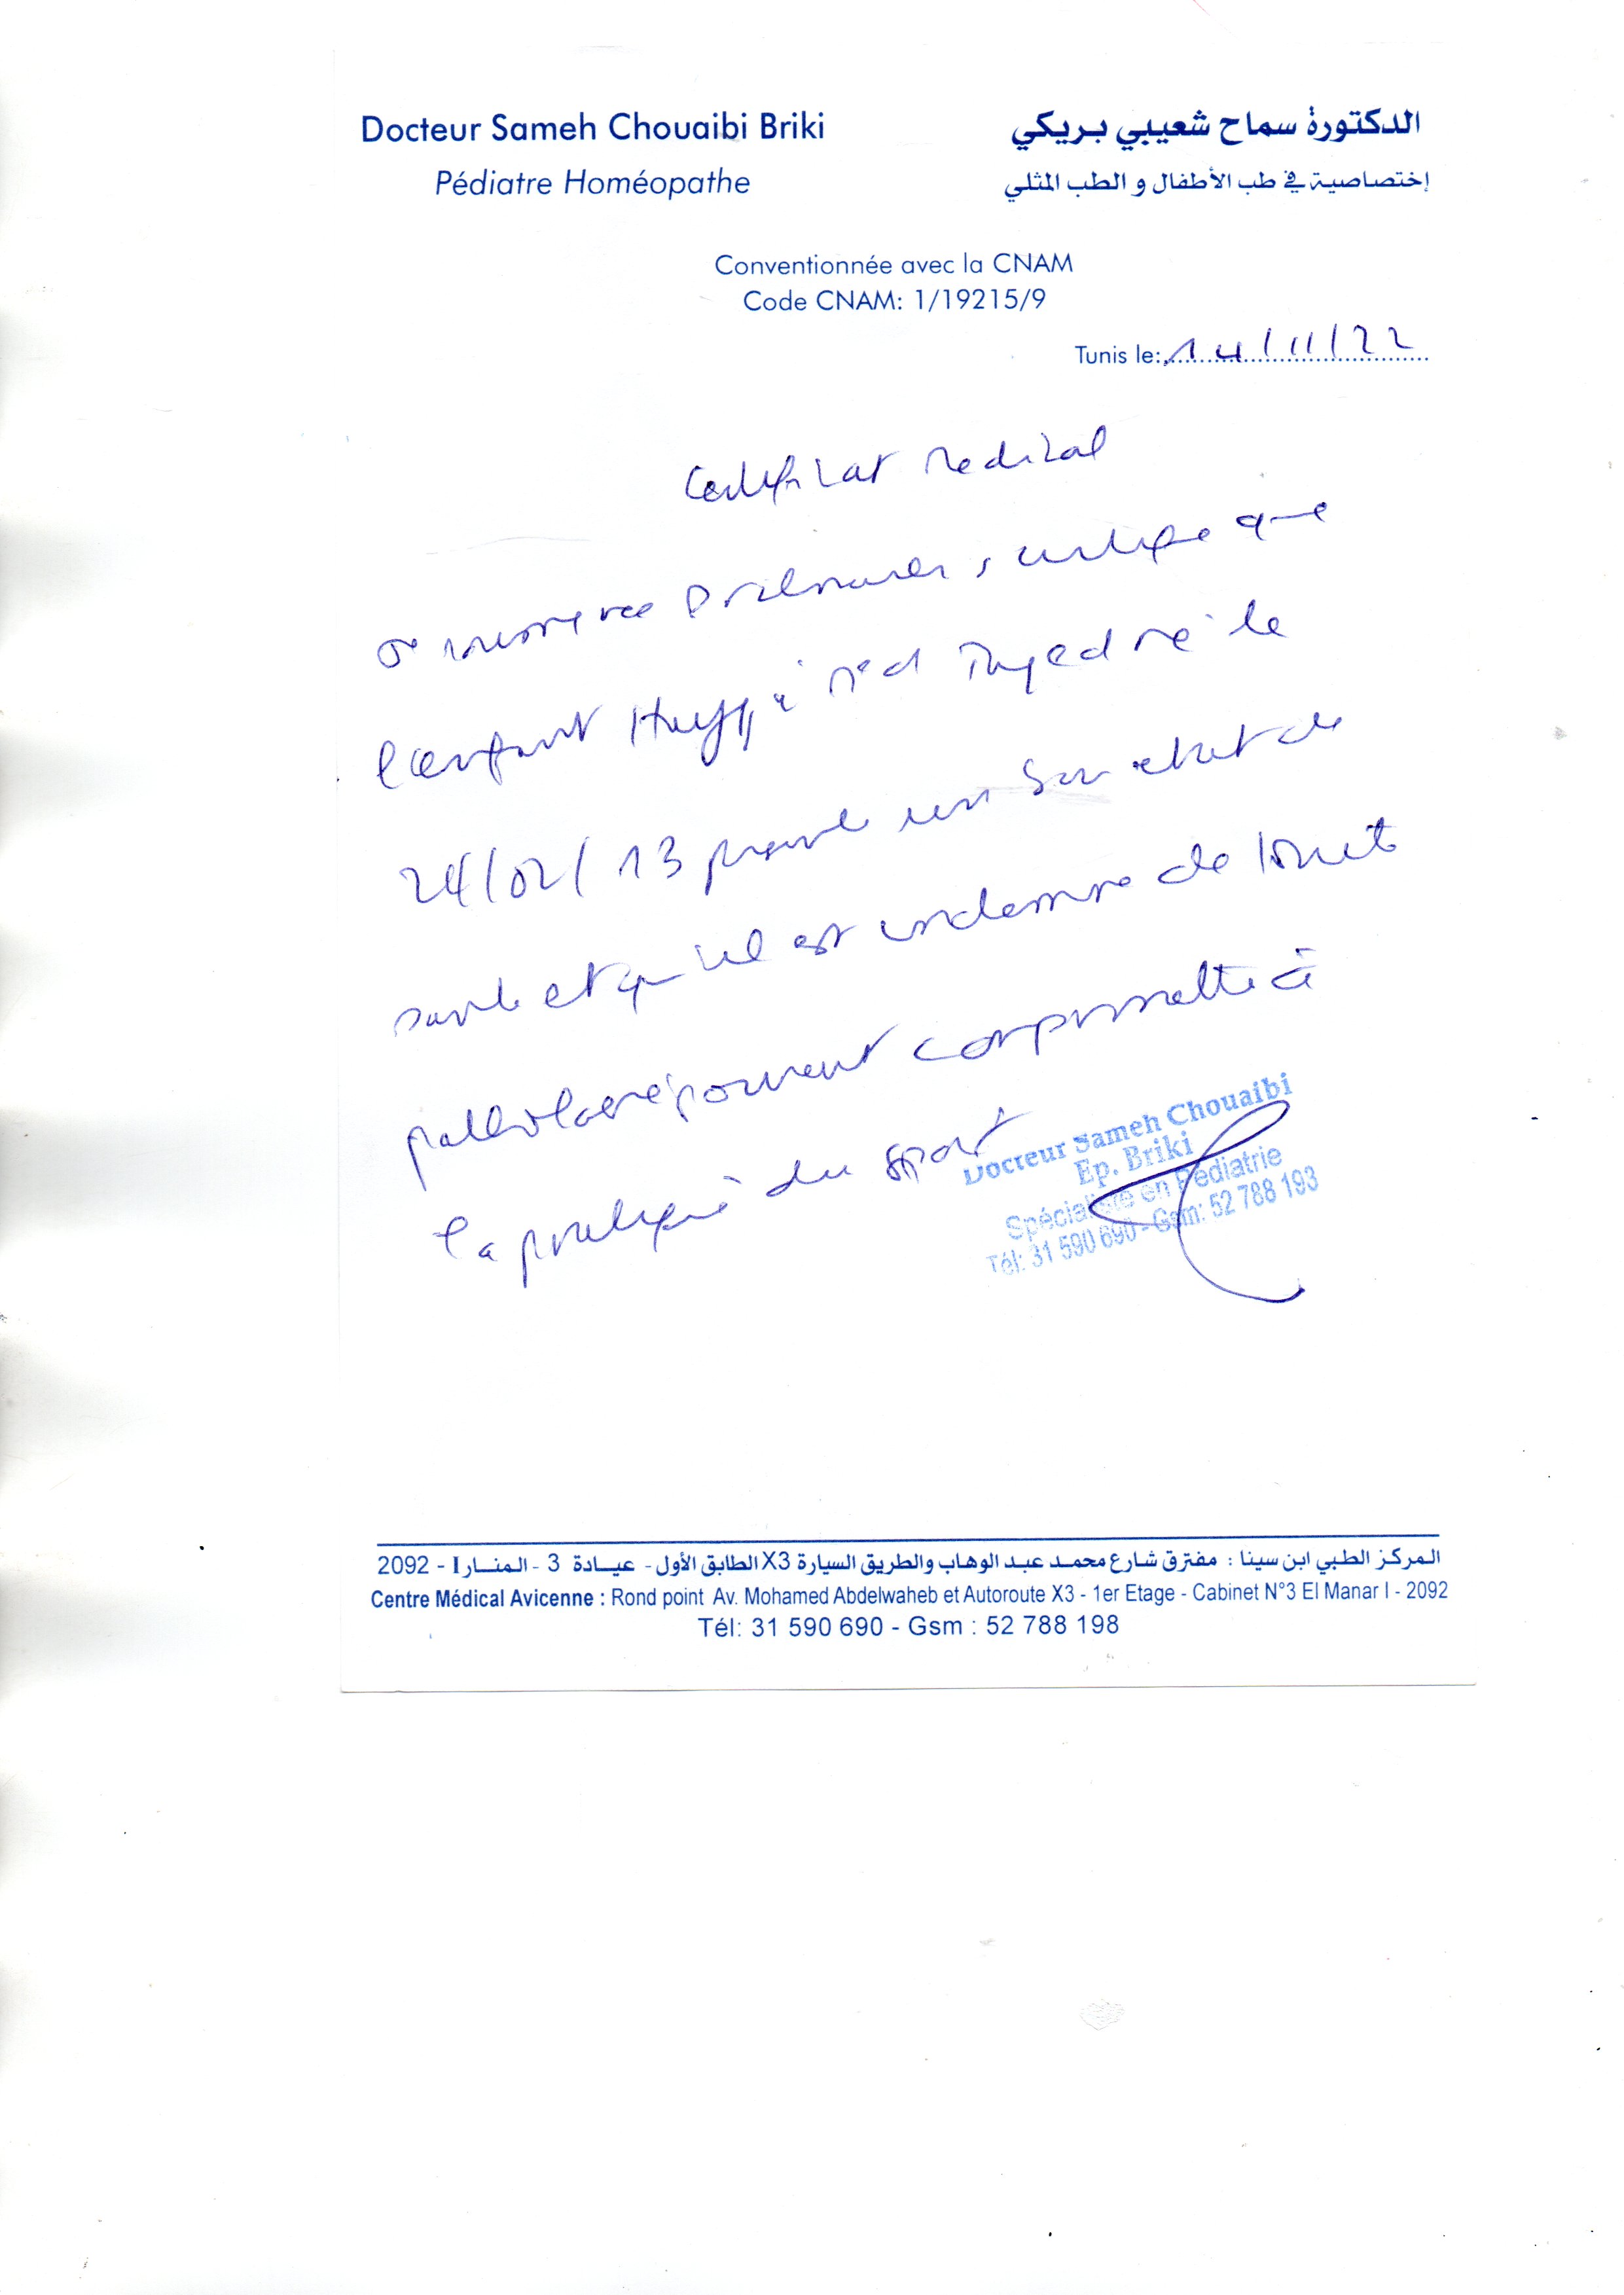 Docteur Sameh Chouaibi Briki
Pédiatre Homéopathe
الدكتورة سماح شعيبي بريكي
إختصاصية في طب الأطفال و الطب المثلي
Conventionnée avec la CNAM
Code CNAM: 1/19215/9
Tunis le: 14/11/22
Certificat Medical
certifie que
l'enfant né le
24/02/13 présente un bon etat de
santé et qu'il est indemne de toute
pathologie pouvant
la pratique du sport
Docteur Sameh Chouaibi
Ep. Briki
Spécialiste en Pédiatrie
Tél: 31 590 690 - Gsm: 52 788 193
المركز الطبي ابن سينا : مفترق شارع محمد عبد الوهاب والطريق السيارة X3 الطابق الأول - عيادة 3 - المنار I - 2092
Centre Médical Avicenne : Rond point Av. Mohamed Abdelwaheb et Autoroute X3 - 1er Etage - Cabinet N°3 El Manar I - 2092
Tél: 31 590 690 - Gsm : 52 788 198